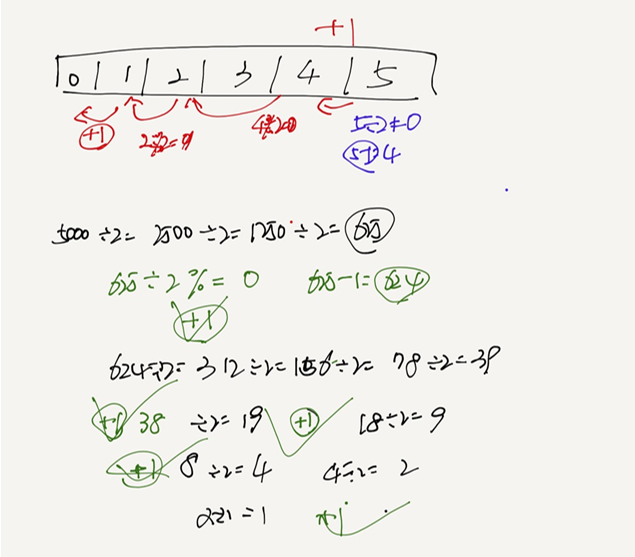 +1
0 1 2 3 4 5
+1 2÷2=1 4÷2=2 5÷2≠0
5-1=4
5000 ÷2= 2500 ÷2= 1250 ÷2= 625
625 ÷ 2 %= 0 625-1= 624
+1
624÷2= 312÷2= 156÷2= 78÷2=39
+1 38 ÷2= 19 +1 18÷2= 9
+1 8 ÷2= 4 4÷2= 2
2÷2 = 1 +1